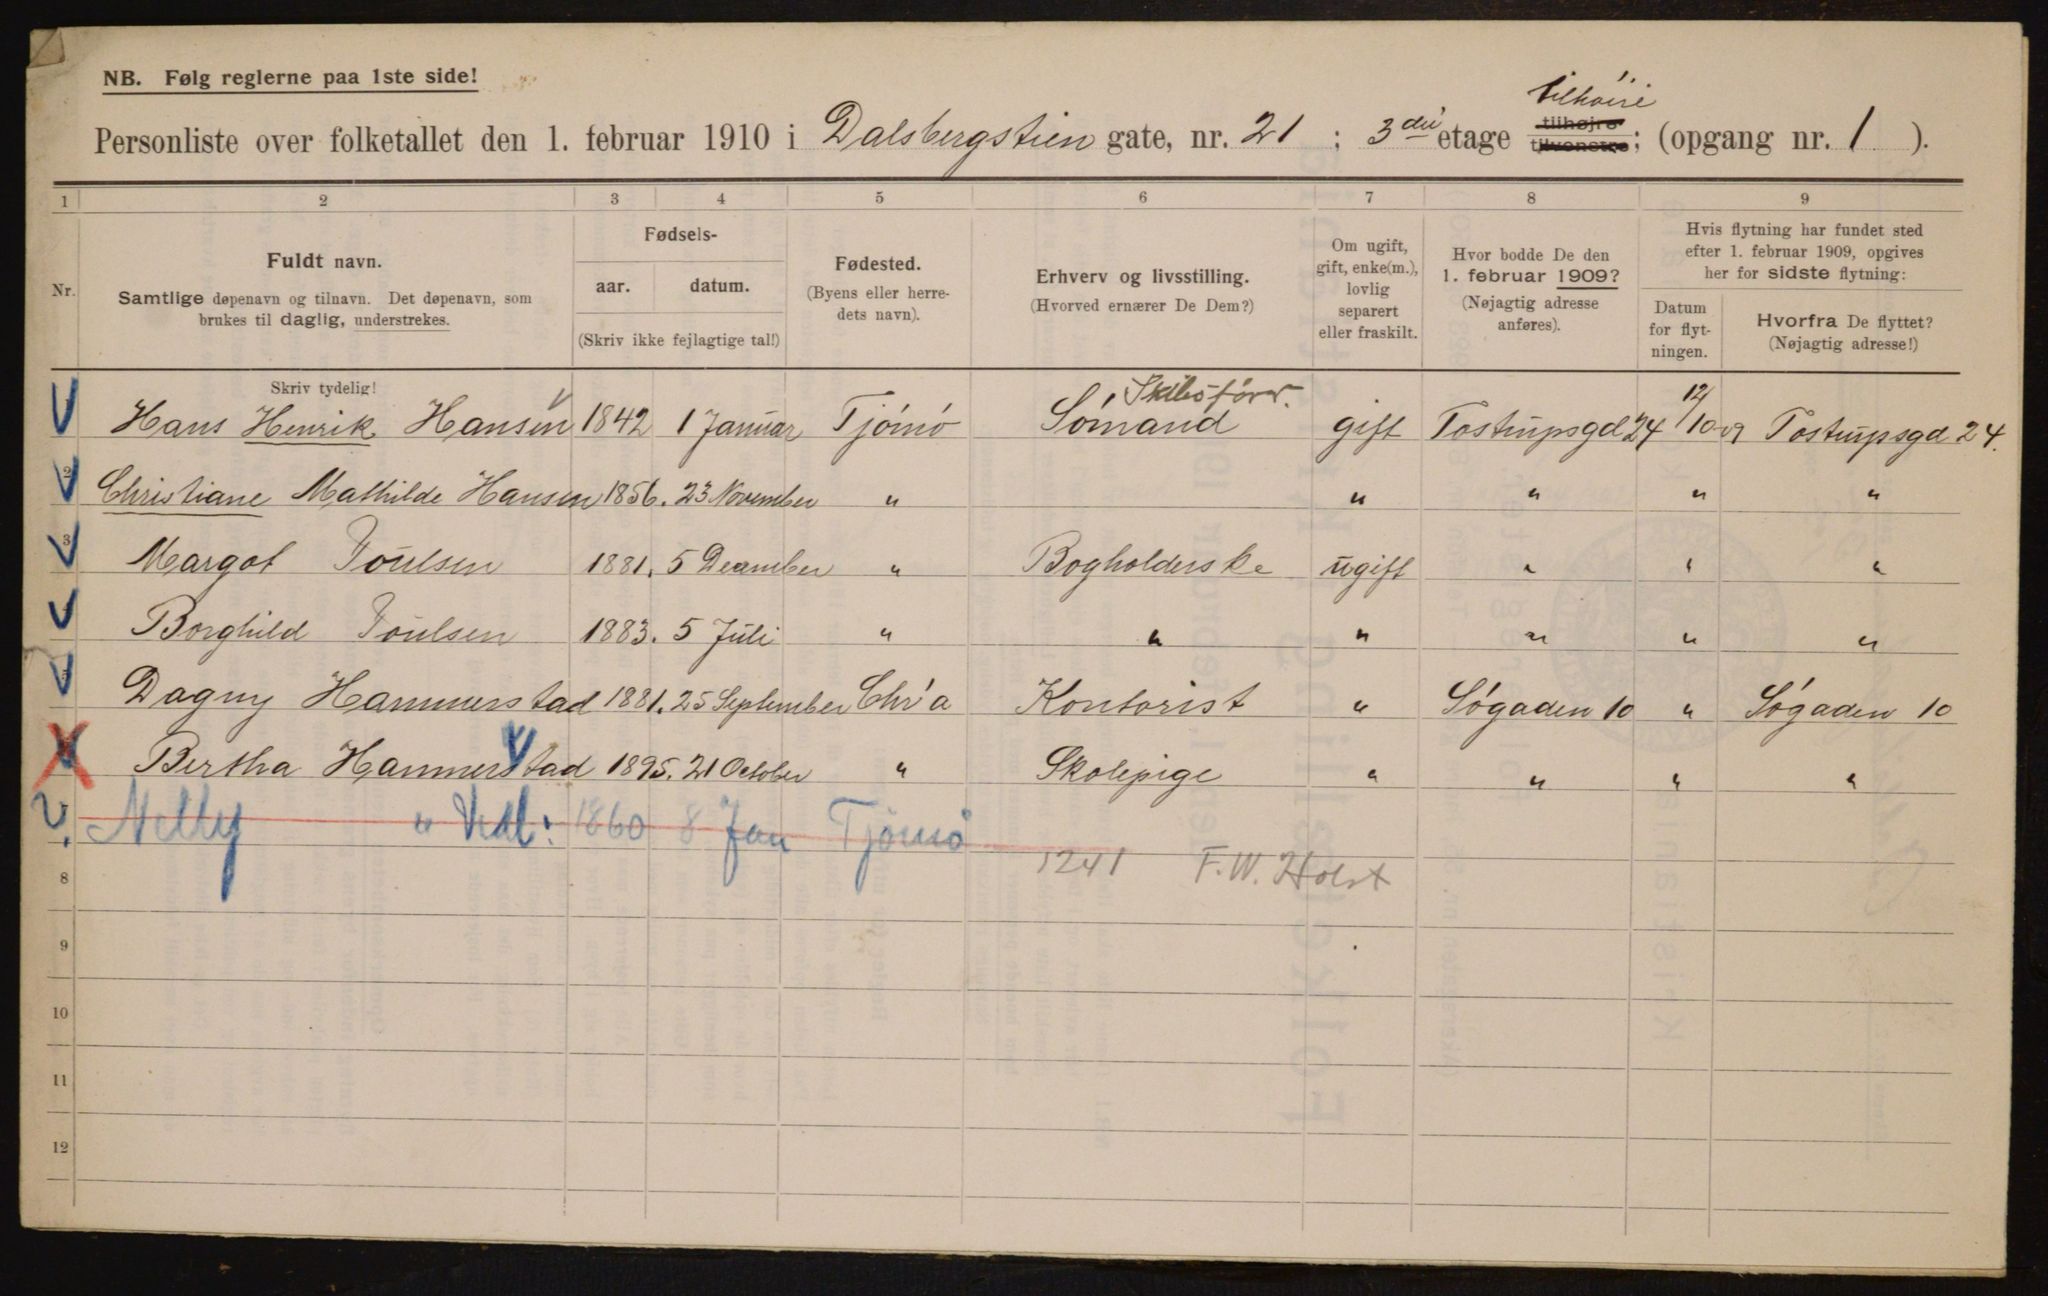 NB. Følg reglerne paa 1ste side!
tilhøire
Personliste over folketallet den 1. februar 1910 i Dalsbergstien gate, nr. 21 ; 3die etage tilhøjre tilvenstre; (opgang nr. 1 ).
1 2 3 4 5 6 7 8 9
Nr.
Fuldt navn.
Samtlige døpenavn og tilnavn. Det døpenavn, som
brukes til daglig, understrekes.
Skriv tydelig!
Fødsels-
aar. datum.
(Skriv ikke fejlagtige tal!)
Fødested.
(Byens eller herre-
dets navn).
Erhverv og livsstilling.
(Hvorved ernærer De Dem?)
Om ugift,
gift, enke(m.),
lovlig
separert
eller fraskilt.
Hvor bodde De den
1. februar 1909?
(Nøjagtig adresse
anføres).
Hvis flytning har fundet sted
efter 1. februar 1909, opgives
her for sidste flytning:
Datum
for flyt-
ningen.
Hvorfra De flyttet?
(Nøjagtig adresse!)
Skibsfører.
Hans Henrik Hansen 1842 1 Januar Tjömö Sömand gift Tostrupsgd 24 12/10 09 Tostrupsgd 24.
2 Christiane Mathilde Hansen 1856. 23 November " " " " "
3 Margot Poulsen 1881. 5 December " Bogholderske ugift " " "
Borghild Poulsen 1883. 5 Juli " " " " " "
5 Dagny Hammerstad 1881. 25 September Chr'a Kontorist " Søgaden 10 " Søgaden 10
Bertha Hammerstad 1895. 21 October " Skolepige " " " "
Nelly " 1860 8 Jan Tjømø
8 1241 F. W. Holst
9
10
11
12